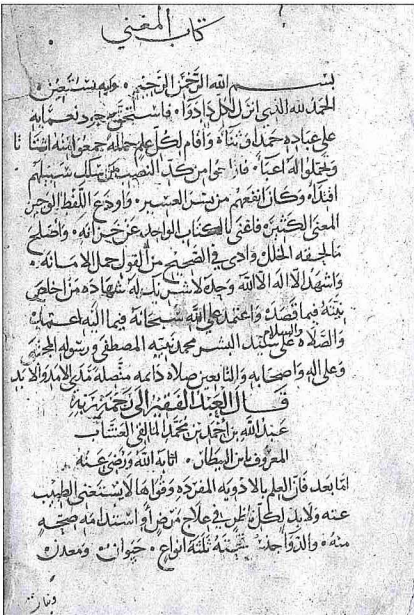 كتاب المغني
بسم الله الرحمن الرحيم وبه نستعين
الحمد لله الذي انزل لكل داء دوا فاستحق بوجود نعمايه
على عباده حمدا وثناء واقام لكل علم حملة جمعوا منه اشتاتا
وتحملوا له اعباء فازاحوا من كد النصب عمن سلك سبيلهم
اقتداء وكان انفعهم من يسر العسير واودع اللفظ الوجيز
المعنى الكثير فاغنى بالكتاب الواحد عن خزانه واصلح
ما لحقه الخلل وادى في الصحيح من القول حمل الامانه
واشهد الا اله الا الله وحده لا شريك له شهادة من اخلص
نيته فيما قصده واعتمد على الله سبحانه فيما اليه اعتمد
والصلاه والسلام على سيد البشر محمد نبيه المصطفى ورسوله المجتبى
وعلى اله واصحابه والتابعين صلاة دايمه متصلة مدى الامد والابد
قال العبد الفقير الى رحمة ربه
عبد الله بن احمد بن محمد المالقي العشاب
المعروف بابن البيطار اثابه الله ورضي عنه
اما بعد فان العلم بالادويه المفرده وقواها لا يستغني الطبيب
عنه ولا بد لكل ناظر في علاج مرض او استدامه صحه
منه والدوا جنسه ثلثة انواع حيوان ومعدن
ونبات